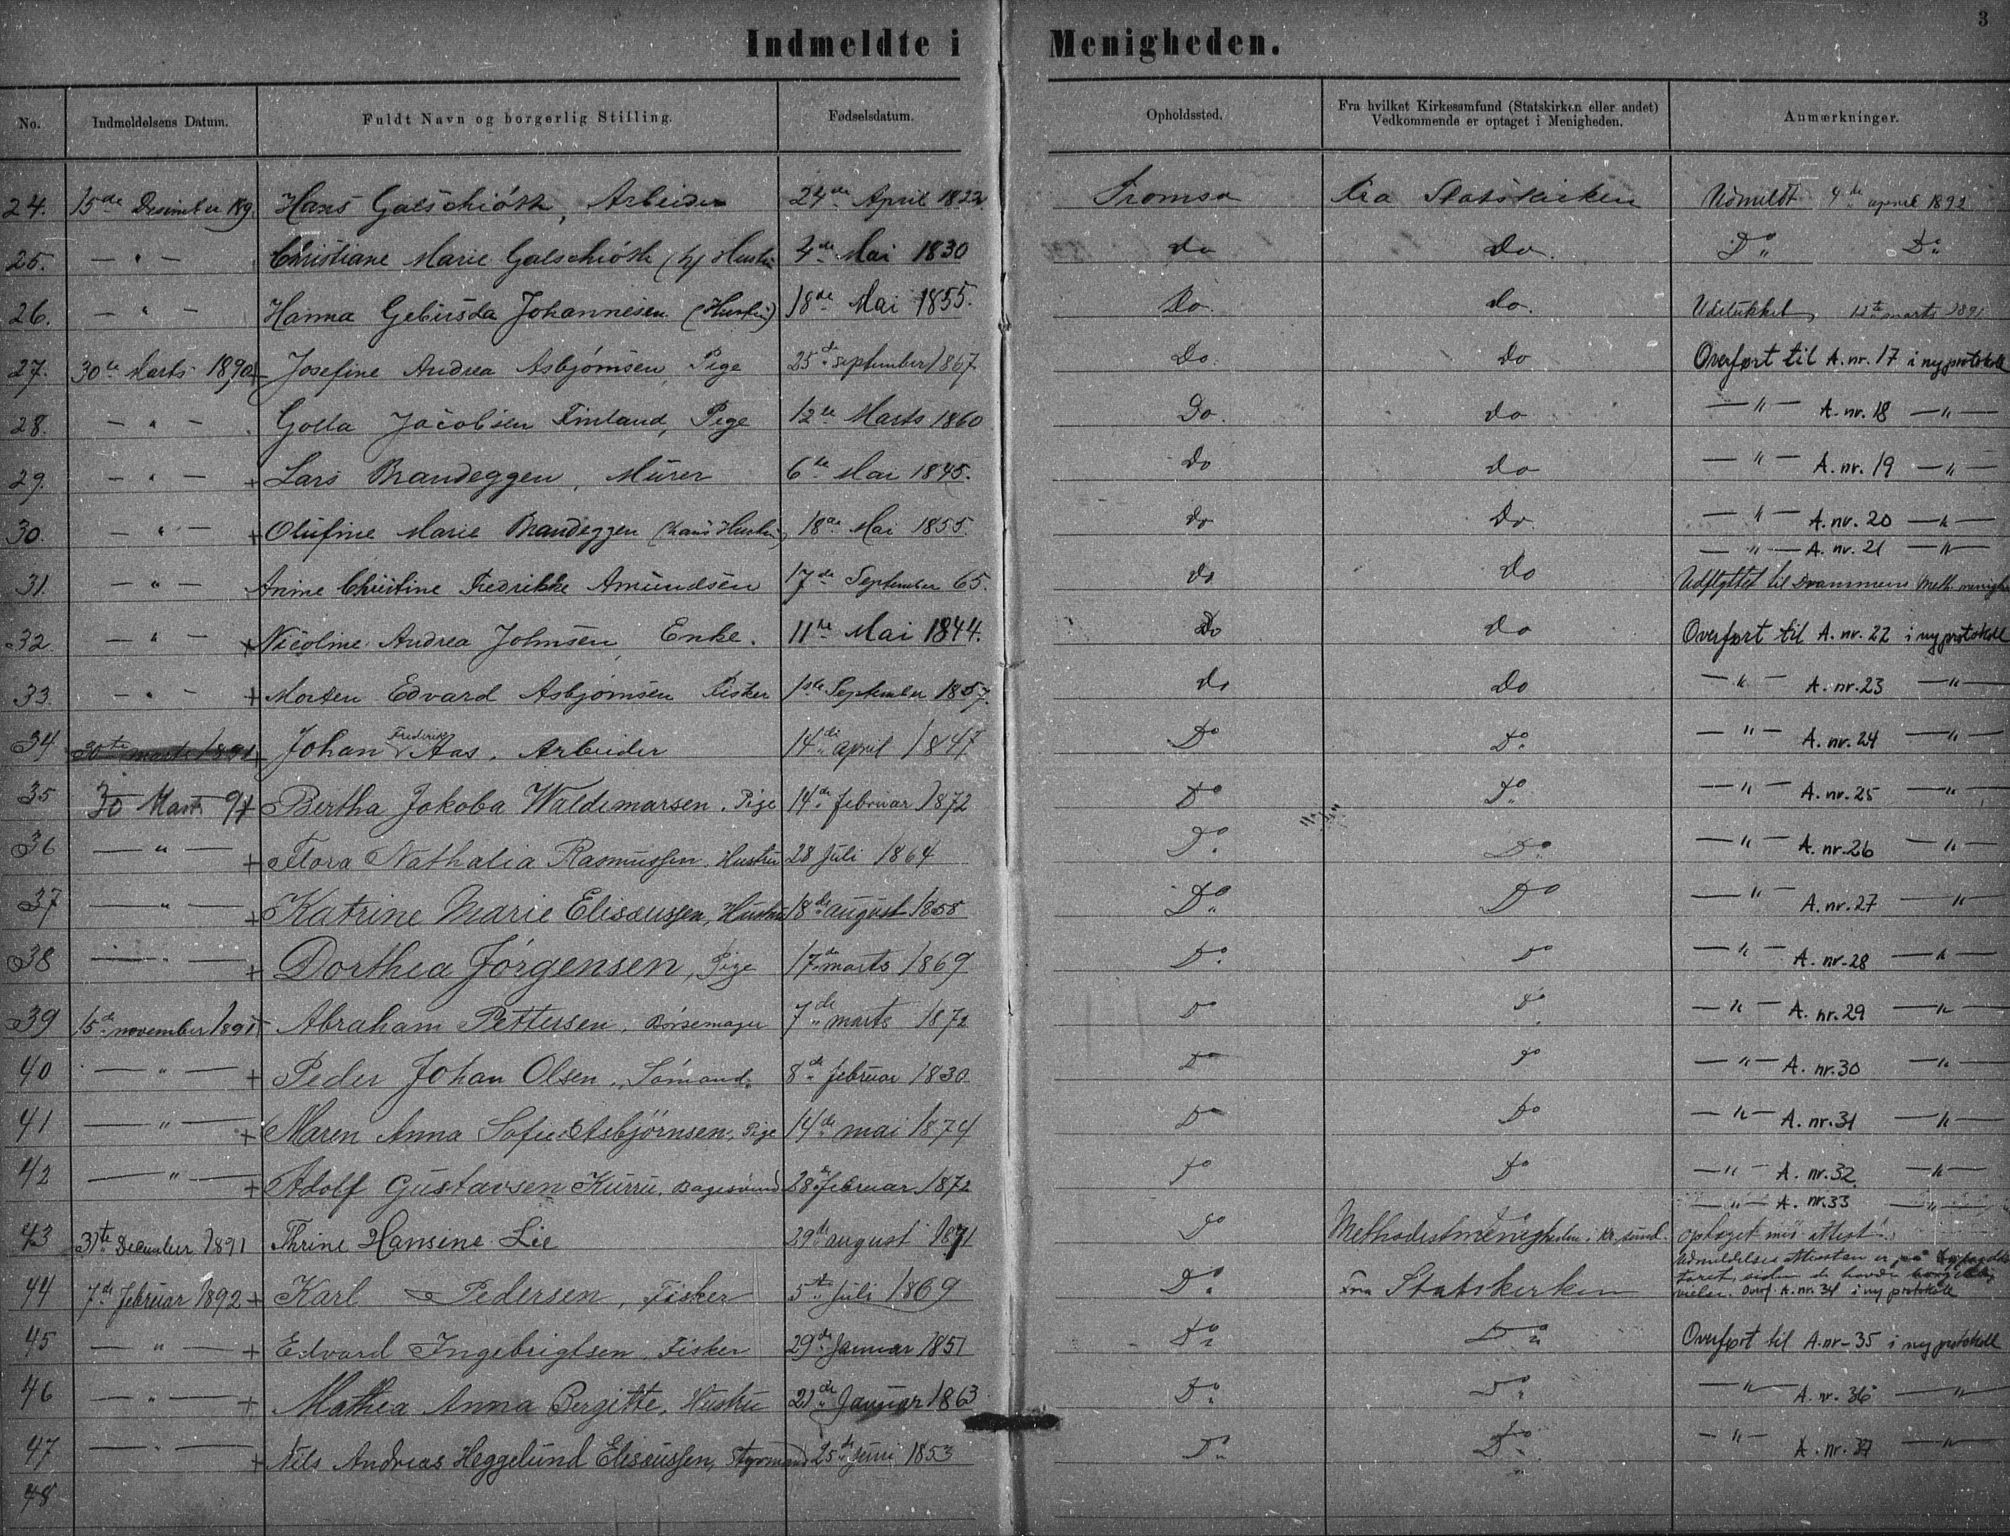 3
Indmeldte i Menigheden.
No. Indmeldelsens Datum. Fuldt Navn og borgerlig Stilling. Fødselsdatum. Opholdssted. Fra hvilket Kirkesamfund (Statskirken eller andet) Vedkommende er optaget i Menigheden. Anmærkninger.
24. 15de Desember 189 Hans Galschiöth, Arbeider 24de April 1822 Tromsø Fra Statskirken Udmeldt 4de april 1892
25. — " — Christiane Marie Galschiöth Hustru 4de Mai 1830 do do. Do Do
26. — " — Hanna Johannesen (Hustru) 18de Mai 1855. Do. do. Udelukket 12te marts 1891
27. 30te Marts 1890 + Josefine Andrea Asbjørnsen, Pige 25de september 1867 Do. do Overført til A. nr. 17 i ny protokoll
28. — " — Golla Jacobsen Finland, Pige 12te Marts 1860 Do. do — " — A. nr. 18 — " —
29. — " — + Lars Brandeggen, Mürer 6te Mai 1845. do do — " — A. nr. 19 — " —
30. — " — + Olufine Marie Brandeggen (hans Hustru) 18de Mai 1855. do do — " — A. nr. 20 — " —
— " — A. nr. 21 — " —
31. — " — Anine Christine Fredrikke Amündsen 17de September 65. do do Udflyttet til Drammens Meth. menighed
32 — " — + Nicoline Andrea Johnsen, Enke. 11te Mai 1844. Do do Overført til A. nr. 22 i ny protokoll
33. — " — + Morten Edvard Asbjørnsen Fisker 1ste September 1857. do do — " — A. nr. 23 — " —
34 30te marts 1891 + Johan Frederik Aas, Arbeider 14de april 1847 Do Do — " — A. nr. 24 — " —
35 30 Marts 91 + Bertha Jokoba Waldemarsen, Pige 14de februar 1872 Do Do — " — A. nr. 25 — " —
36 — " — + Flora Nathalia Rasmussen, Hustru 28 Juli 1864 Do Do — " — A. nr. 26 — " —
37 — " — + Katrine Marie Elisæussen, Hustru 18de august 1858 Do Do — " — A. nr. 27 — " —
38 — " — + Dorthea Jörgensen, Pige 17de marts 1869 Do Do — " — A. nr. 28 — " —
39 15de november 1891 + Abraham Pettersen, Børsemager 7de marts 1872 Do Do — " — A. nr. 29 — " —
40 — " — + Peder Johan Olsen, Sømand 8de februar 1830 Do Do — " — A. nr. 30 — " —
41 — " — + Maren Anna Sofie Asbjörnsen, Pige 14de mai 1874 Do Do — " — A. nr. 31 — " —
42 — " — + Adolf Gustavsen Kurru, Bagersvend 28de februar 1872 Do Do — " — A. nr. 32 — " —
— " — A. nr. 33 — " —
43 31te December 1891 Thrine Hansine Lie 29de august 1871 Do Methodistmenigheden i Kr.sund. optaget mis attest
Udmeldelses attesten er på
44 7de februar 1892 + Karl Pedersen, Fisker 5te Juli 1869 Do Fra Statskirken siden de havde
Overf. A. nr. 34 i ny protokoll
45 — " — + Edvard Ingebrigtsen, Fisker 29de Januar 1851 Do Do Overført til A. nr - 35 i ny protokoll
46 — " — + Mathea Anna Bergitte, Hustru 21de Januar 1863 Do Do — " — A. nr. 36 — " —
47 — " — + Nils Andreas Heggelund Elisæussen, Styrmand 25de Juni 1853 Do Do — " — A. nr. 37 — " —
48